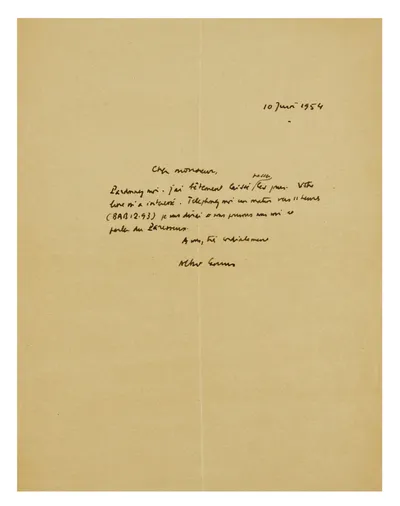 10 Juin 1954
Cher monsieur,
passer
Pardonnez moi. J'ai bêtement laissé les jours. Votre
livre m'a intéressé. Téléphonez moi un matin vers 11 heures
(BAB: 12.93) je vous dirai si vous pouvez me voir et
parler du
A vous, très cordialement
Albert Camus